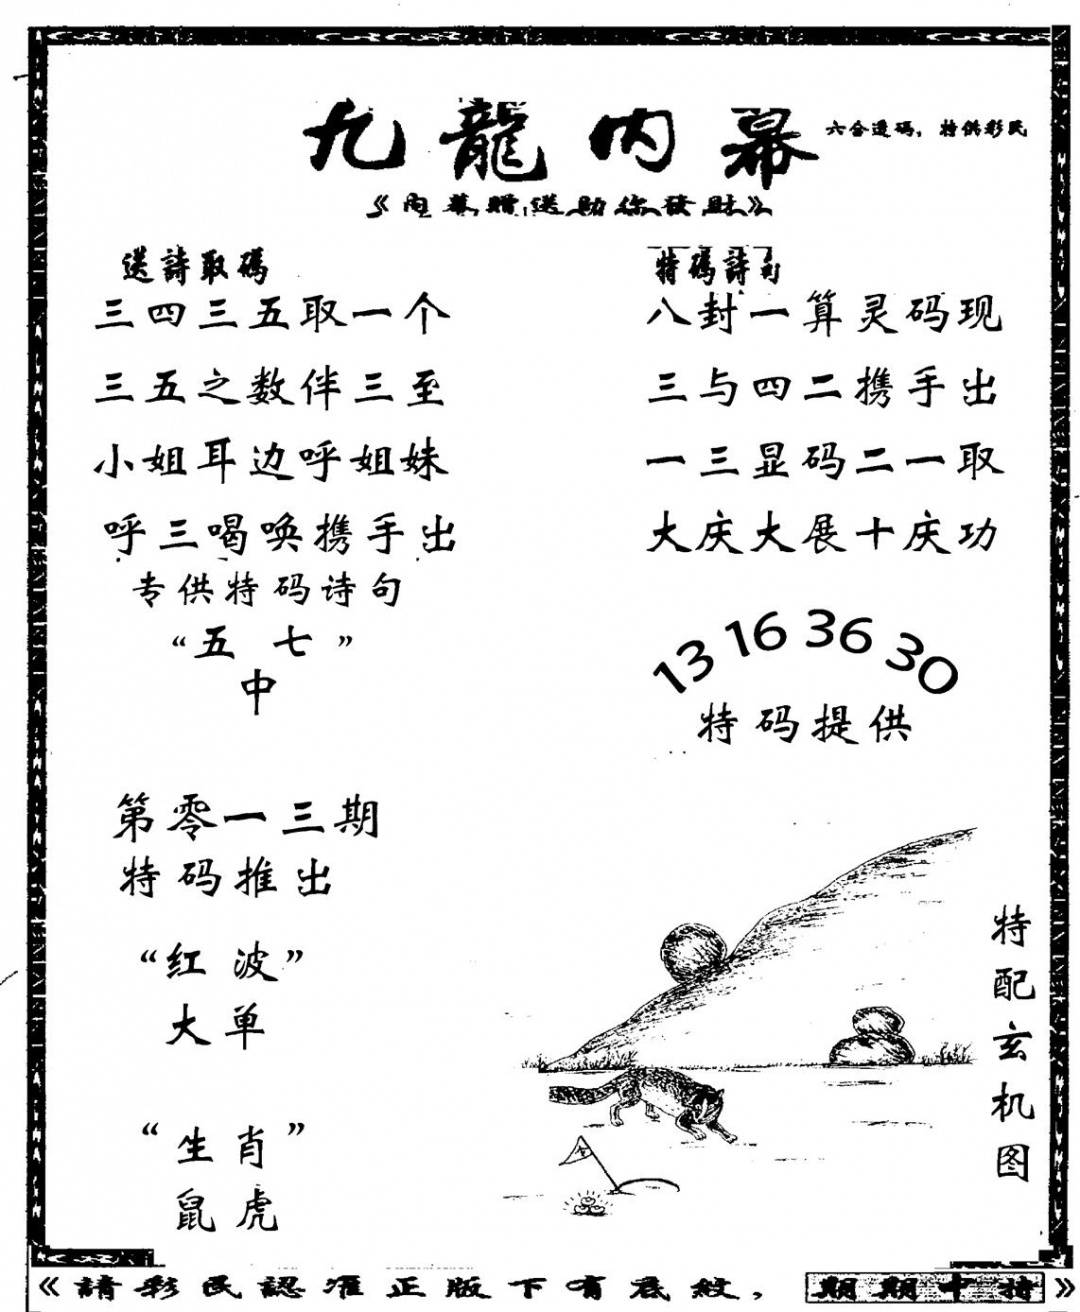 九龍内幕
六合透码，特供彩民
《内幕赠送助你發財》
送詩取碼
三四三五取一个
三五之数伴三至
小姐耳边呼姐妹
呼三喝唤携手出
专供特码诗句
“五七”
中
第零一三期
特码推出
“红波”
大单
“生肖”
鼠虎
特碼詩句
八封一算灵码现
三与四二携手出
一三显码二一取
大庆大展十庆功
13 16 36 30
特码提供
特配玄机图
《請彩民認准正版下有底紋，期期中特》